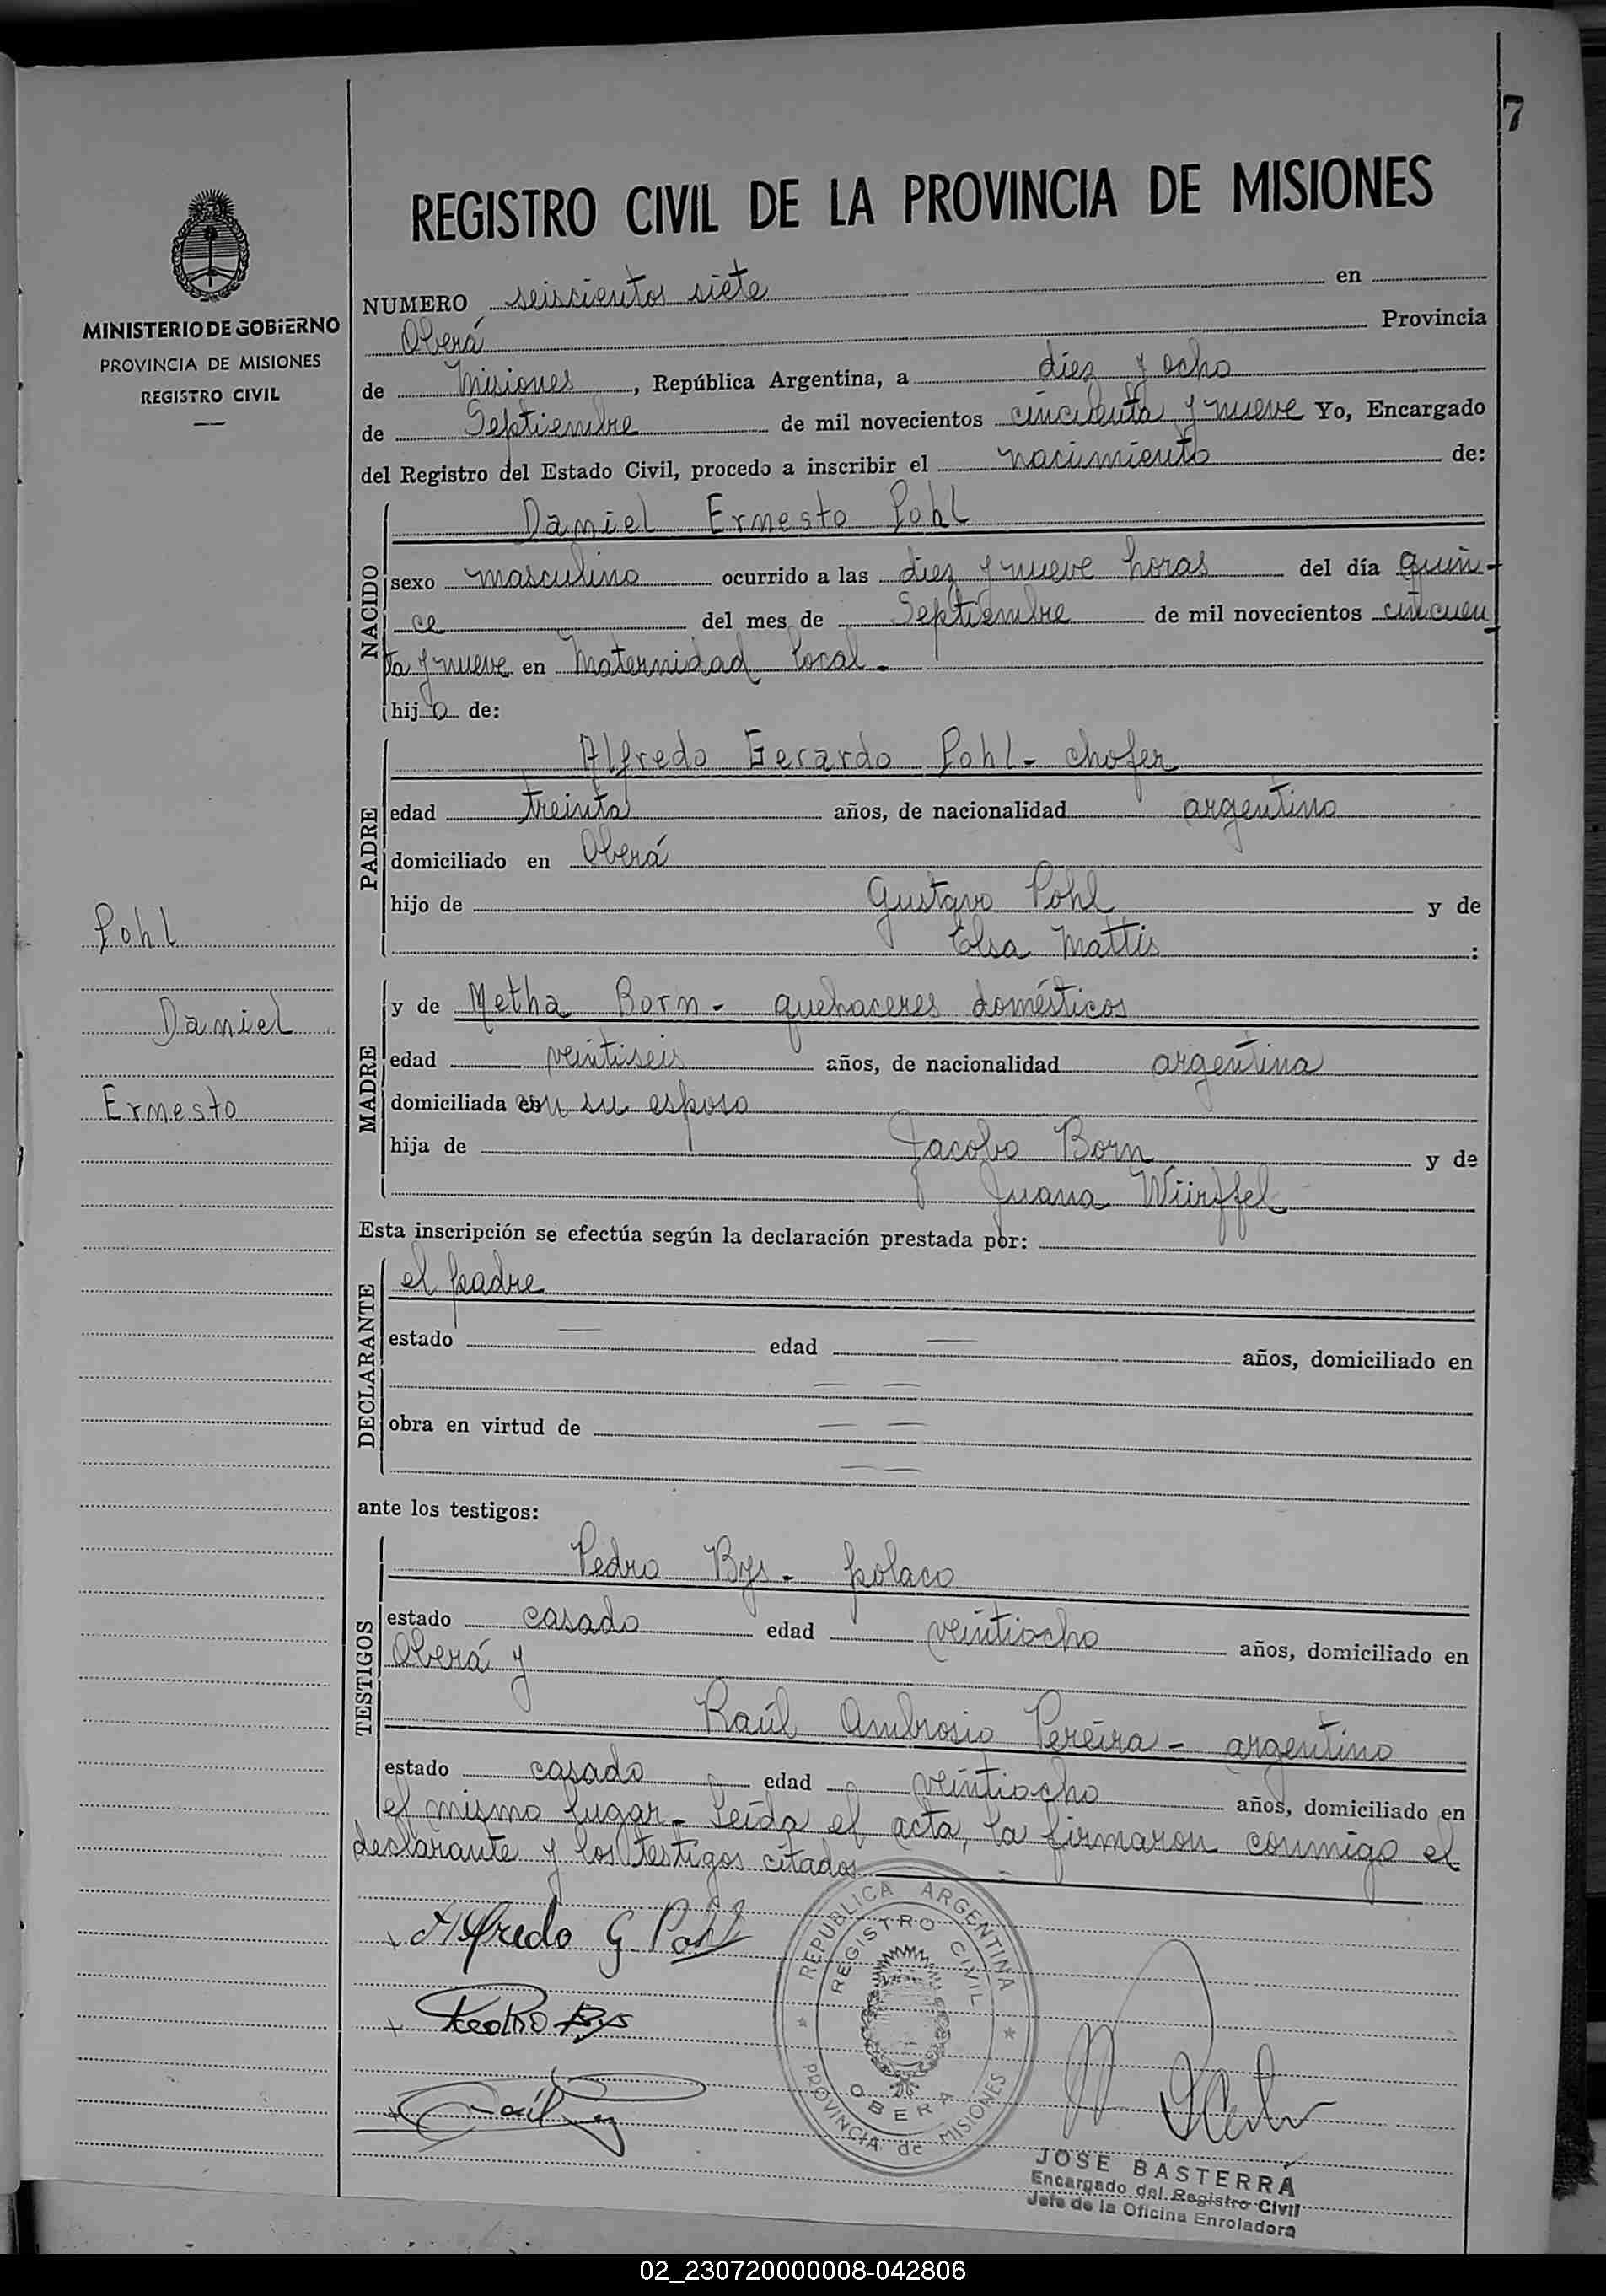 7
REGISTRO CIVIL DE LA PROVINCIA DE MISIONES
MINISTERIO DE GOBIERNO
PROVINCIA DE MISIONES
REGISTRO CIVIL
NUMERO seiscientos siete en
Oberá Provincia
de Misiones, República Argentina, a diez y ocho
de Septiembre de mil novecientos cincuenta y nueve Yo, Encargado
del Registro del Estado Civil, procedo a inscribir el nacimiento de:
NACIDO
Daniel Ernesto Pohl
sexo masculino ocurrido a las diez y nueve horas del día quin-
ce del mes de Septiembre de mil novecientos cincuen
ta y nueve en Maternidad local.-
hijo de:
PADRE
Alfredo Gerardo Pohl - chofer
edad treinta años, de nacionalidad argentino
domiciliado en Oberá
hijo de Gustavo Pohl y de
Elsa Mattis :
Pohl
Daniel
Ernesto
MADRE
y de Metha Born - quehaceres domésticos
edad veintiseis años, de nacionalidad argentina
domiciliada con su esposo
hija de Jacobo Born y de
Juana Würffel
Esta inscripción se efectúa según la declaración prestada por:
DECLARANTE
el padre
estado — edad — años, domiciliado en
— —
obra en virtud de — —
— —
ante los testigos:
TESTIGOS
Pedro Bys - polaco
estado casado edad veintiocho años, domiciliado en
Oberá y
Raúl Ambrosio Pereira - argentino
estado casado edad veintiocho años, domiciliado en
el mismo lugar - Leída el acta, la firmaron conmigo el
declarante y los testigos citados
Alfredo G Pohl
Pedro Bys
Raúl
REPUBLICA ARGENTINA
REGISTRO CIVIL
OBERA
PROVINCIA de MISIONES
JOSE BASTERRA
Encargado del Registro Civil
Jefe de la Oficina Enroladora
02_230720000008-042806